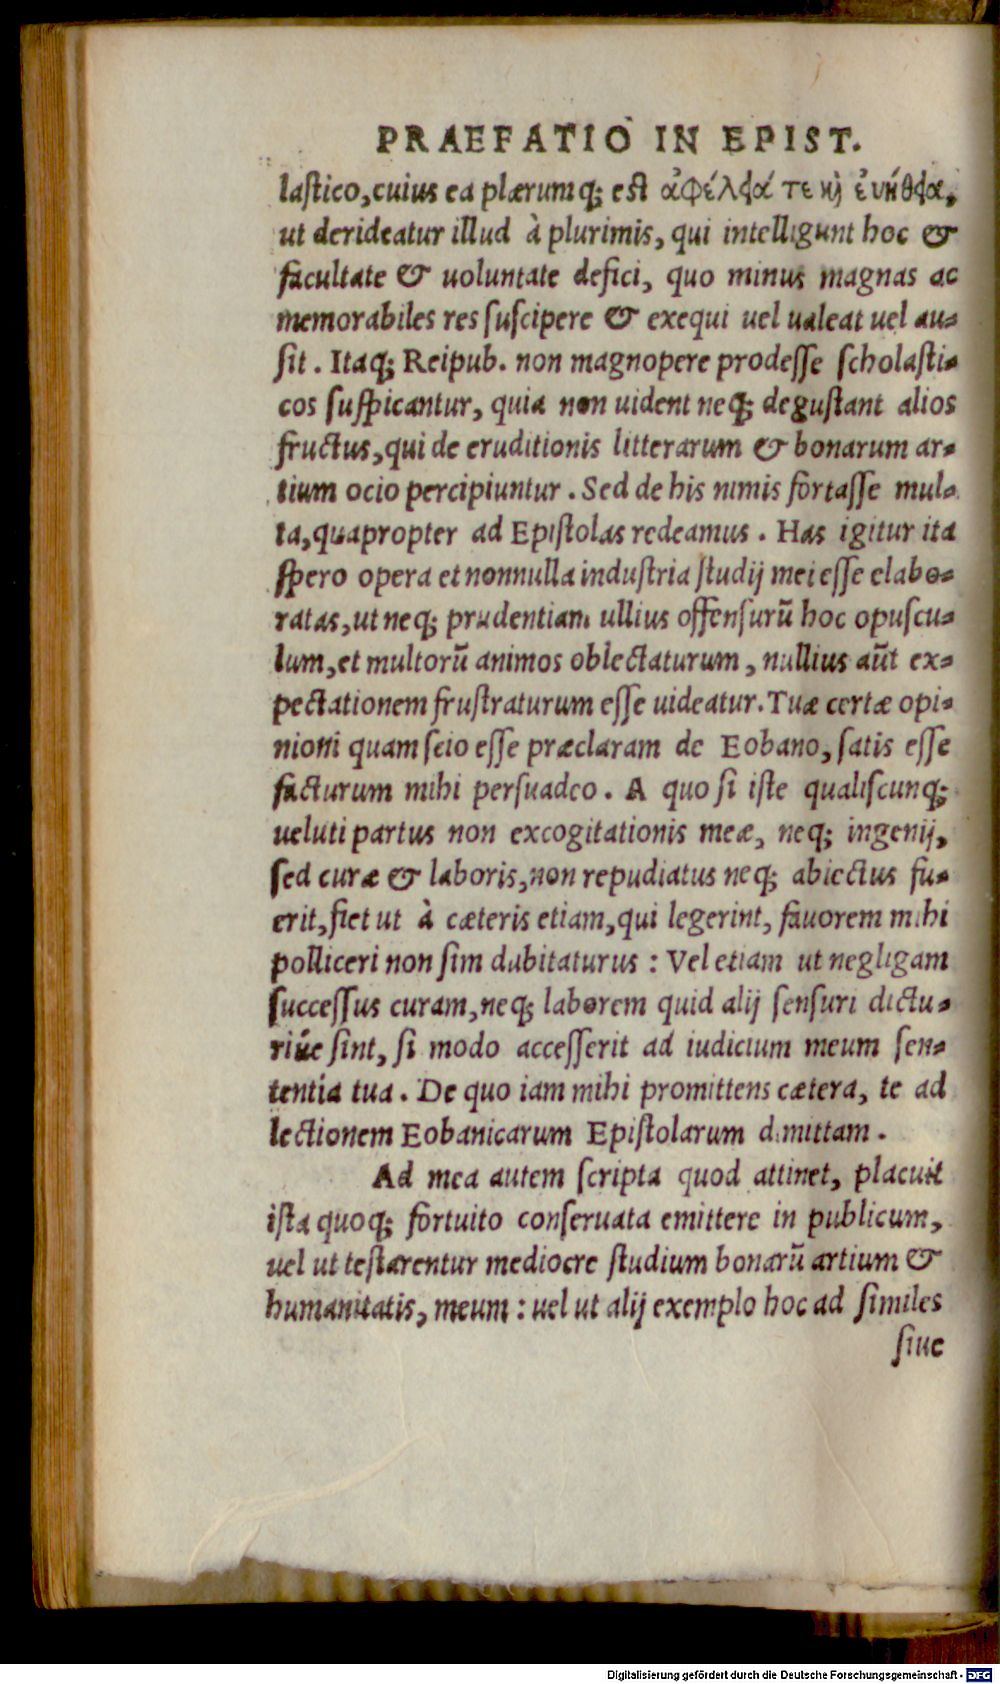 PRAEFATIO IN EPIST.
laſtico, cuius ea plærumq; eſt ἀφέλεια τε κὶ ἐυήθεια,
ut derideatur illud à plurimis, qui intelligunt hoc &
facultate & uoluntate defici, quo minus magnas ac
memorabiles res ſuſcipere & exequi uel ualeat uel au-
ſit. Itaq; Reipub. non magnopere prodeſſe ſcholaſti-
cos ſuſpicantur, quia non uident neq; deguſtant alios
fructus, qui de eruditionis litterarum & bonarum ar-
tium ocio percipiuntur. Sed de his nimis fortaſſe mul-
ta, quapropter ad Epiſtolas redeamus. Has igitur ita
ſpero opera et nonnulla induſtria ſtudij mei eſſe elabo-
ratas, ut neq; prudentiam ullius offenſurũ hoc opuſcu-
lum, et multorũ animos oblectaturum, nullius aũt ex-
pectationem fruſtraturum eſſe uideatur. Tuæ certæ opi-
nioni quam ſcio eſſe præclaram de Eobano, ſatis eſſe
facturum mihi perſuadeo. A quo ſi iſte qualiſcunq;
ueluti partus non excogitationis meæ, neq; ingenij,
ſed curæ & laboris, non repudiatus neq; abiectus fu-
erit, fiet ut à cæteris etiam, qui legerint, fauorem mihi
polliceri non ſim dubitaturus: Vel etiam ut negligam
ſucceſſus curam, neq; laborem quid alij ſenſuri dictu-
riúe ſint, ſi modo acceſſerit ad iudicium meum ſen-
tentia tua. De quo iam mihi promittens cætera, te ad
lectionem Eobanicarum Epiſtolarum dimittam.
Ad mea autem ſcripta quod attinet, placuit
iſta quoq; fortuito conſeruata emittere in publicum,
uel ut teſtarentur mediocre ſtudium bonarũ artium &
humanitatis, meum: uel ut alij exemplo hoc ad ſimiles
ſiue
Digitalisierung gefördert durch die Deutsche Forschungsgemeinschaft - DFG